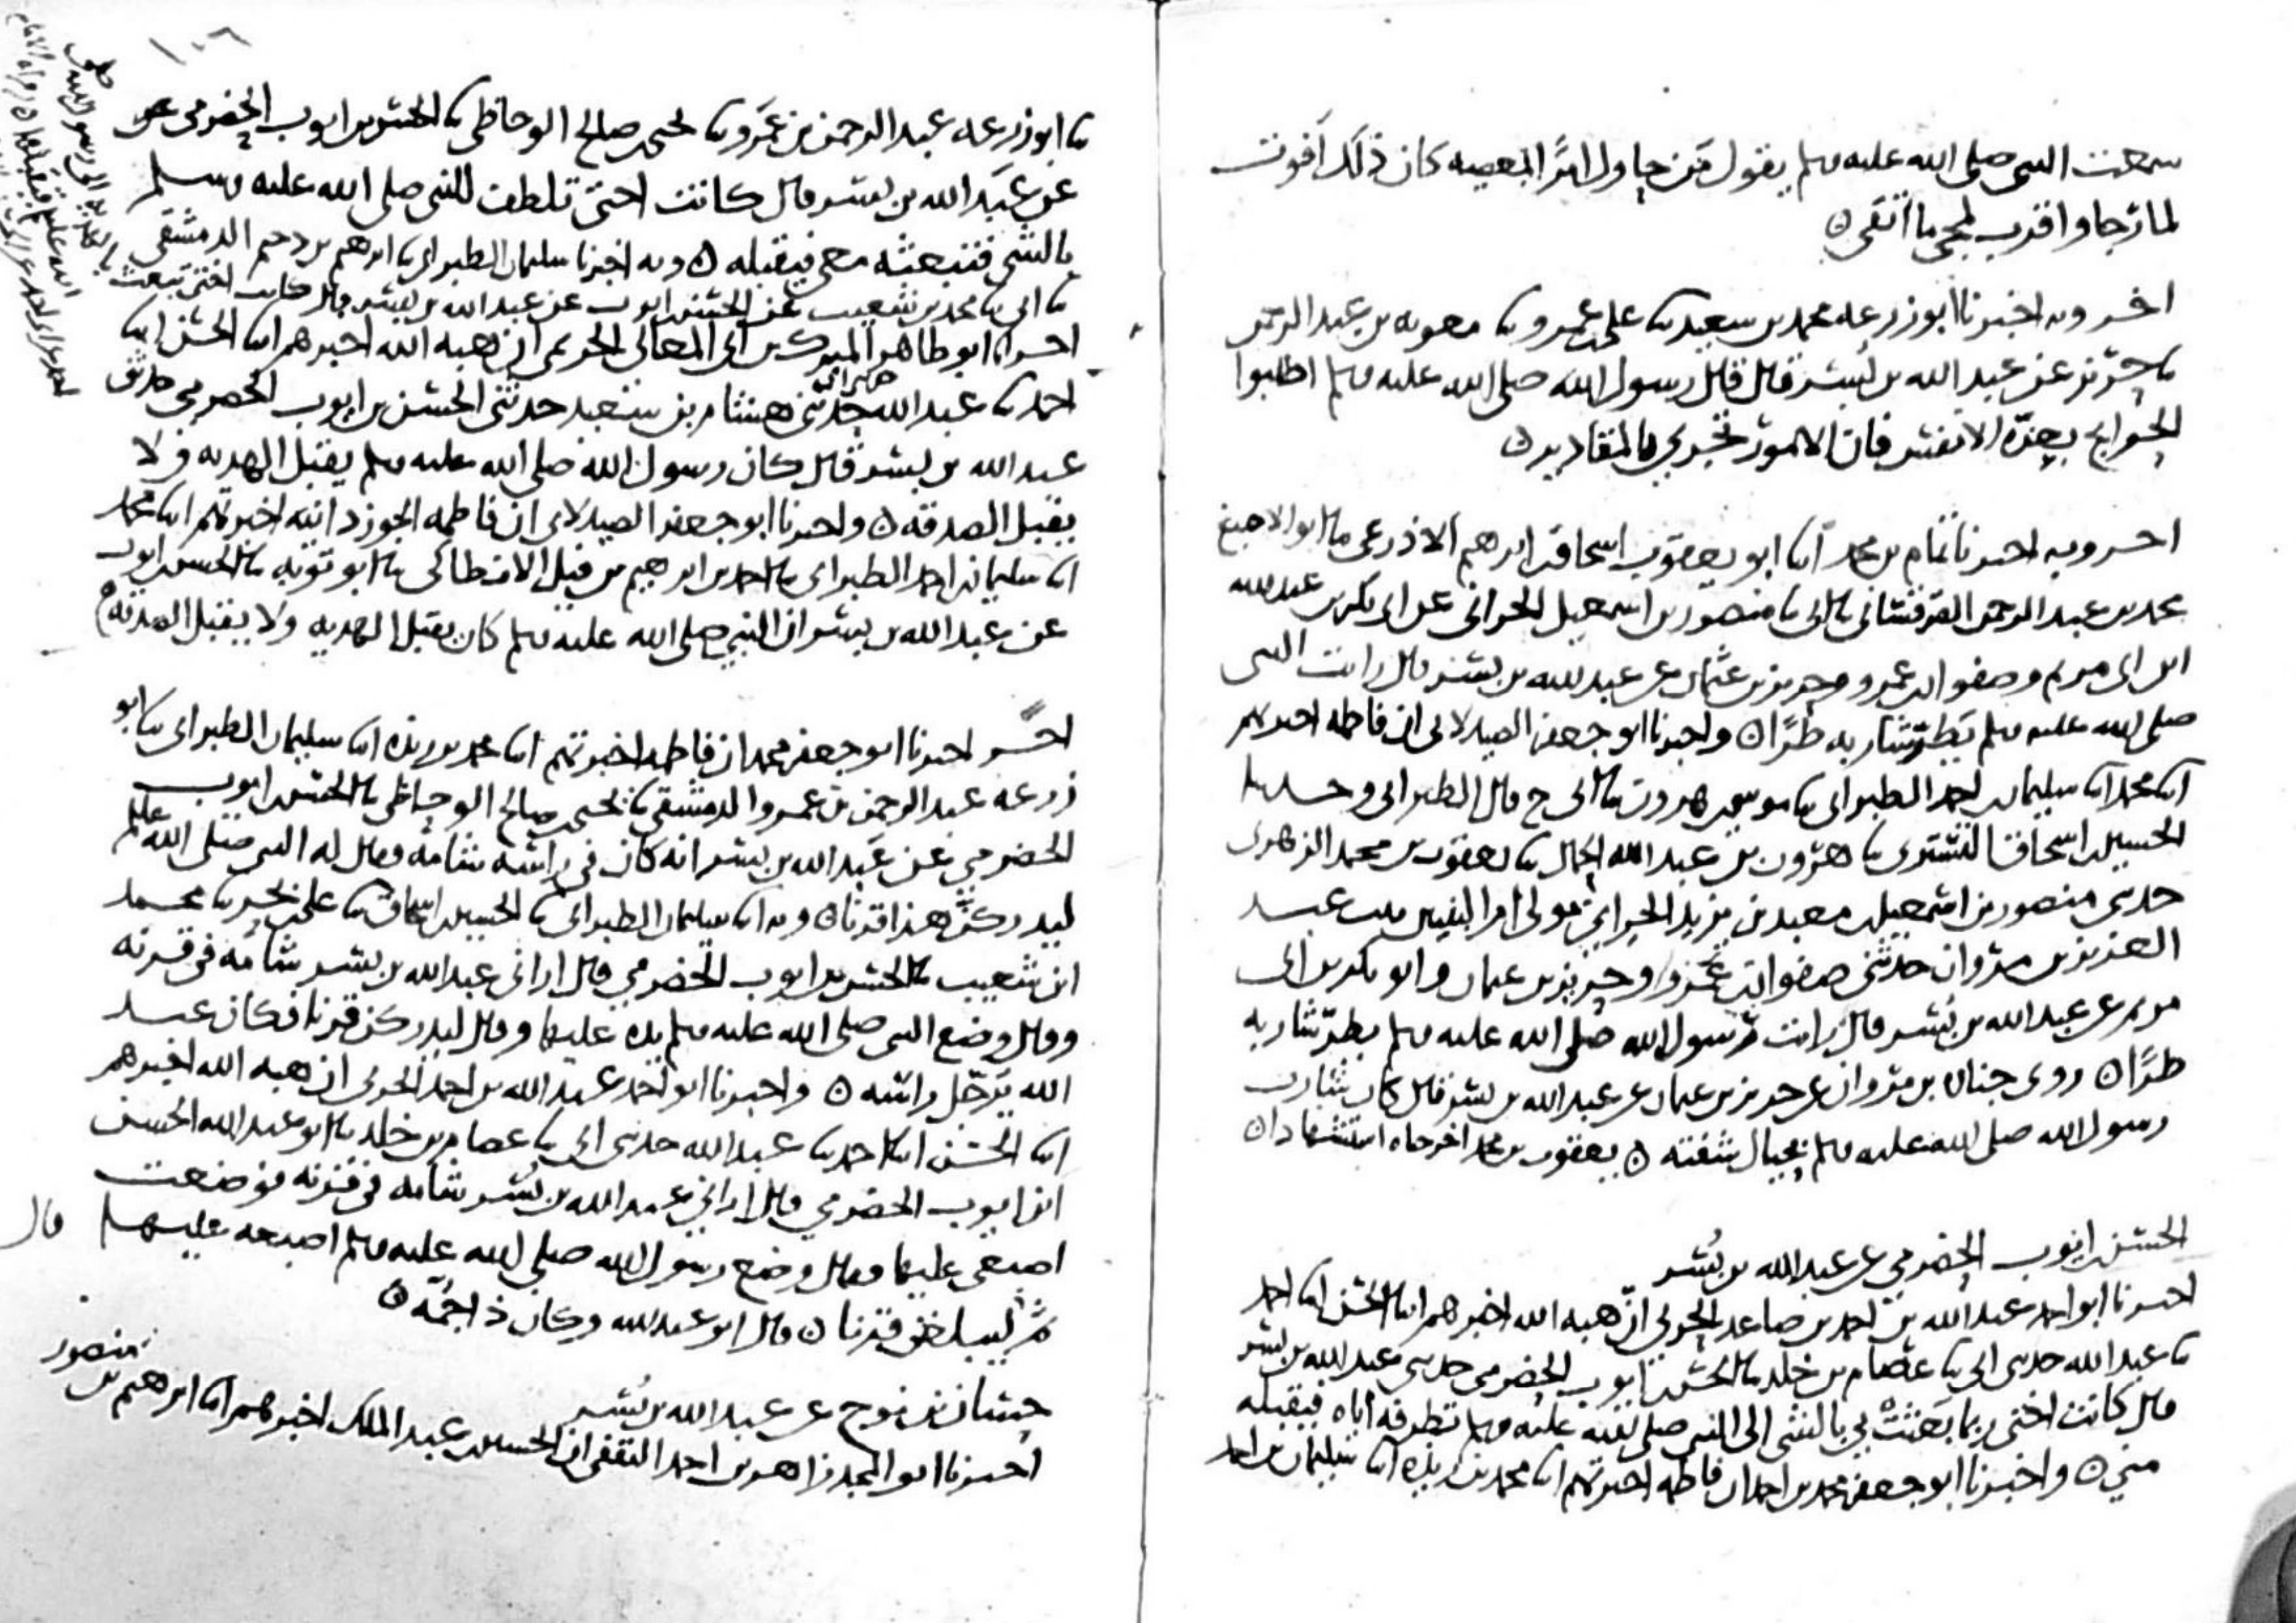 سمعت النبي صلى الله عليه وسلم يقول من حاول امرًا بمعصيه كان ذلك افوت
لما رجا واقرب لمجي ما اتقى ن
اخر وبه اخبرنا ابو زرعه محمد بن سعيد نا على بن عمرو نا معويه بن عبد الرحمن
نا حريز عن عبد الله بن بسر قال قال رسول الله صلى الله عليه وسلم اطلبوا
الحوايج بعزه الانفس فان الامور تجري بالمقادير ن
اخر وبه اخبرنا تمام بن محمد انا ابو يعقوب اسحاق بن ابرهيم الاذرعى نا ابو الاصبغ
محمد بن عبد الرحمن القرقسانى نا ابى نا منصور بن اسمعيل الحرانى عن ابى بكر بن عبد الله
ابن ابى مريم وصفوان بن عمرو وحريز بن عثمان عن عبد الله بن بسر قال رايت النبى
صلى الله عليه وسلم يطر شاربه طرًا ن واخبرنا ابو جعفر الصيدلانى ان فاطمه اخبرتهم
انا محمد انا سليمان بن احمد الطبرانى نا موسى بن هرون نا ابى ح قال الطبرانى وحدثنا
الحسين بن اسحاق التسترى نا هرون بن عبد الله الحمال نا يعقوب بن محمد الزهرى
حدثنى منصور بن اسمعيل بن معبد بن يزيد الحرانى مولى ام البنين بنت عبد
العزيز بن مروان حدثنى صفوان بن عمرو وحريز بن عثمان وابو بكر بن ابى
مريم عن عبد الله بن بسر قال رايت رسول الله صلى الله عليه وسلم يطر شاربه
طرًا ن روى جنان بن مروان عن حريز بن عثمان عن عبد الله بن بسر قال كان شارب
رسول الله صلى الله عليه وسلم بحيال شفته ن يعقوب بن محمد اخرجاه استشهادا ن
الحسن بن ايوب الحضرمي عن عبد الله بن بُسر
اخبرنا ابو احمد عبد الله بن احمد بن صاعد الحربى ان هبه الله اخبرهم انا الحسن انا احمد
نا عبد الله حدثنى ابى نا عصام بن خلد نا الحسن بن ايوب الحضرمى حدثنى عبد الله بن بسر
قال كانت اختى ربما بعثت بي بالشى الى النبى صلى الله عليه وسلم تطرفه اياه فيقبله
مني ن واخبرنا ابو جعفر محمد بن احمد ان فاطمه اخبرتهم انا محمد بن ريذه انا سليمان بن احمد
١٠٦
نا ابو زرعه عبد الرحمن بن عمرو نا يحيى بن صالح الوحاظى نا الحسن بن ايوب الحضرمى عن
عن عبد الله بن بسر قال كانت اختى تلطف للنبى صلى الله عليه وسلم
بالشى فتبعثه معى فيقبله ن وبه اخبرنا سليمان الطبرانى نا ابرهيم بن دحيم الدمشقى
نا ابى نا محمد بن شعيب عن الحسن بن ايوب عن عبد الله بن بسر قال كانت اختى تبعث
اخبرنا ابو طاهر المبرك بن ابى المعالى الحريمى ان هبه الله اخبرهم انا الحسن انا
احمد نا عبد الله حدثنى هشام بن سعيد حدثنى الحسن بن ايوب الحضرمى حدثنى
عبد الله بن بسر قال كان رسول الله صلى الله عليه وسلم يقبل الهديه ولا
يقبل الصدقه ن واخبرنا ابو جعفر الصيدلانى ان فاطمه الجوزدانيه اخبرتهم انا محمد
انا سليمان بن احمد الطبرانى نا احمد بن ابرهيم بن فيل الانطاكى نا ابو توبه نا الحسن بن ايوب
عن عبد الله بن بسر ان النبى صلى الله عليه وسلم كان يقبل الهديه ولا يقبل الصدقه
اخر اخبرنا ابو جعفر محمد ان فاطمه اخبرتهم انا محمد بن ريذه انا سليمان الطبرانى نا ابو
زرعه عبد الرحمن بن عمرو الدمشقى نا يحيى بن صالح الوحاظى نا الحسن بن ايوب
الحضرمي عن عبد الله بن بسر انه كان في راسه شامه فقال له النبى صلى الله عليه وسلم
ليدركن هذا قرنا ن وبه انا سليمان الطبرانى نا الحسين بن اسحاق نا على بن بحر نا محمد
ابن شعيب نا الحسن بن ايوب الحضرمي قال ارانى عبد الله بن بسر شامه فى قرنه
وقال وضع النبى صلى الله عليه وسلم يده عليها وقال ليدركن قرنا فكان عبد
الله يرجل راسه ن واخبرنا ابو احمد عبد الله بن احمد الحربى ان هبه الله اخبرهم
انا الحسن انا احمد نا عبد الله حدثنى ابى نا عصام بن خلد نا ابو عبد الله الحسن
ابن ايوب الحضرمي قال ارانى عبد الله بن بسر شامه فى قرنه فوضعت
اصبعى عليها فقال وضع رسول الله صلى الله عليه وسلم اصبعه عليها قال
ثم ليبلغن قرنا ن قال ابو عبد الله وكان ذا جمّه ن
حسان بن نوح عن عبد الله بن بُسر
اخبرنا ابو المجد زاهر بن احمد الثقفى ان الحسين بن عبد الملك اخبرهم انا ابرهيم بن منصور